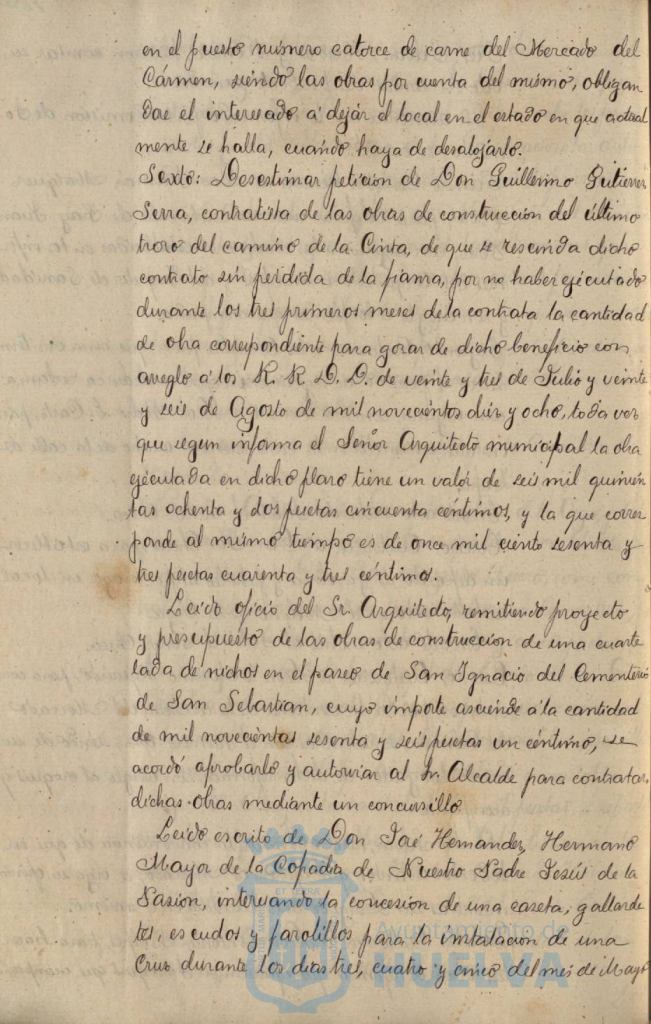 en el puesto número catorce de carne del Mercado del
Cármen, siendo las obras por cuenta del mismo, obligan
dose el interesado á dejár el local en el estado en que actual
mente se halla, cuando haya de desalojarlo.
Sexto: Desestimar petición de Don Guillermo Gutierrez
Serra, contratista de las obras de construcción del último
trozo del camino de la Cinta, de que se rescinda dicho
contrato sin perdida de la fianza, por no haber ejecutado
durante los tres primeros meses de la contrata la cantidad
de obra correspondiente para gozar de dicho beneficio con
arreglo á los R. R. D. D. de veinte y tres de Julio y veinte
y seis de Agosto de mil novecientos diez y ocho, toda vez
que segun informa el Señor Arquitecto municipal la obra
ejecutada en dicho plazo tiene un valór de seis mil quinien
tas ochenta y dos pesetas cincuenta céntimos, y la que corres
ponde al mismo tiempo es de once mil ciento sesenta y
tres pesetas cuarenta y tres céntimos.
Leido oficio del Sr. Arquitecto, remitiendo proyecto
y presupuesto de las obras de construccion de una cuarte
lada de nichos en el paseo de San Ignacio del Cementerio
de San Sebastian, cuyo importe asciende á la cantidad
de mil novecientas sesenta y seis pesetas un céntimo, se
acordó aprobarlo y autorizar al Sr. Alcalde para contratar
dichas obras mediante un concursillo.
Leido escrito de Don José Hernandez, Hermano
Mayor de la Cofradia de Nuestro Padre Jesús de la
Pasión, interesando la concesion de una caseta, gallarde
tes, escudos y farolillos para la instalacion de una
Cruz durante los dias tres, cuatro y cinco del mes de Mayo
Ayuntamiento de
HUELVA